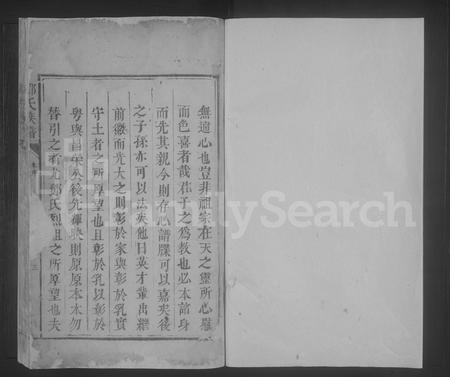 無適心也豈非祖宗在天之靈所心慰
而色喜者哉君子之為教也必本諸身
而先其親今則存心譜牒可以嘉矣後
之子孫亦可以法矣他日英才輩出繼
前徽而光大之則彰於家與彰於乳實
守土者之所厚望也且彰於乳以彰於
粵與昌 後先輝映則原原本本勿
替引之 鄧氏烈祖之所厚望也夫
氏族譜
FamilySearch